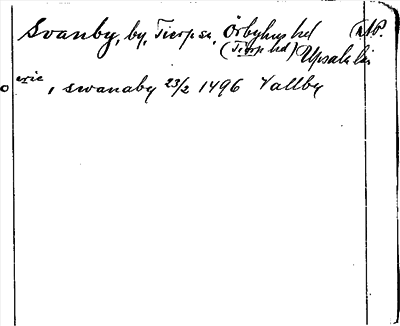 Svanby, by, Tierps sn, Örbyhus hd NtP.
(Tierps hd) Upsala län
eric, i swanaby 23/2 1496 Vallby